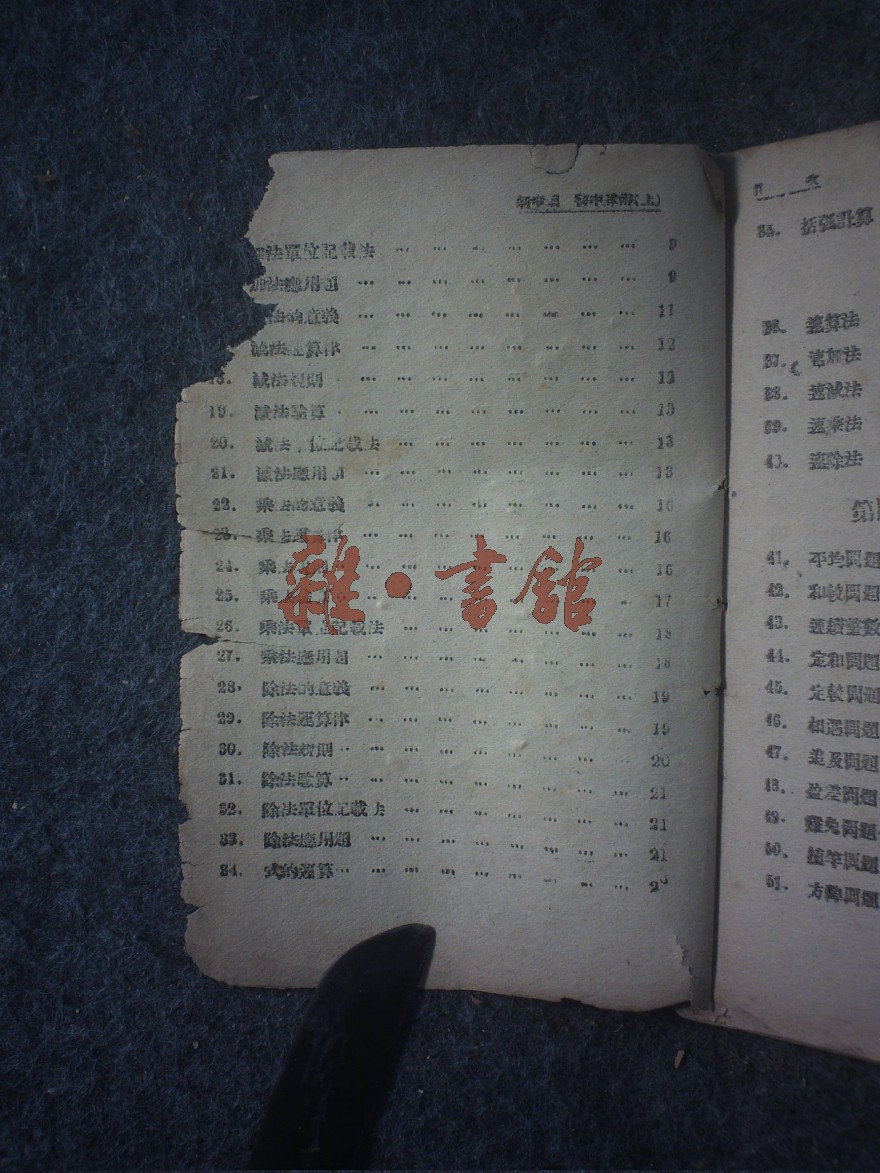 初中算術(上)
加法單位記載法 … … … … … … … 9
加法應用題 … … … … … … … … 9
法的意義 … … … … … … … … 11
減法運算律 … … … … … … … … 12
18. 減法規則 … … … … … … … 12
19. 減法驗算 … … … … … … … 13
20. 減法單位記載法 … … … … … … … 13
21. 減法應用題 … … … … … … … 13
22. 乘法的意義 … … … … … … … … 16
23. 乘法運算律 … … … … … … … … 16
24. 乘法規則 … … … … … … … 16
25. 乘法驗算 … … … … … … … 17
26. 乘法單位記載法 … … … … … … … 18
27. 乘法應用題 … … … … … … … … 18
28. 除法的意義 … … … … … … … … 19
29. 除法運算律 … … … … … … … … 19
30. 除法規則 … … … … … … … … 20
31. 除法驗算 … … … … … … … … 21
32. 除法單位記載法 … … … … … … … 21
33. 除法應用題 … … … … … … … … 21
34. 式的運算 … … … … … … … …
雜·書館
目 次
35. 括弧計算
36. 速算法
37. 速加法
38. 速減法
39. 速乘法
40. 速除法
第
41. 平均問題
42. 和較問題
43. 連續整數
44. 定和問題
45. 定較問題
46. 相遇問題
47. 追及問題
48. 盈差問題
49. 雞兔問題
50. 植竿問題
51. 方陣問題